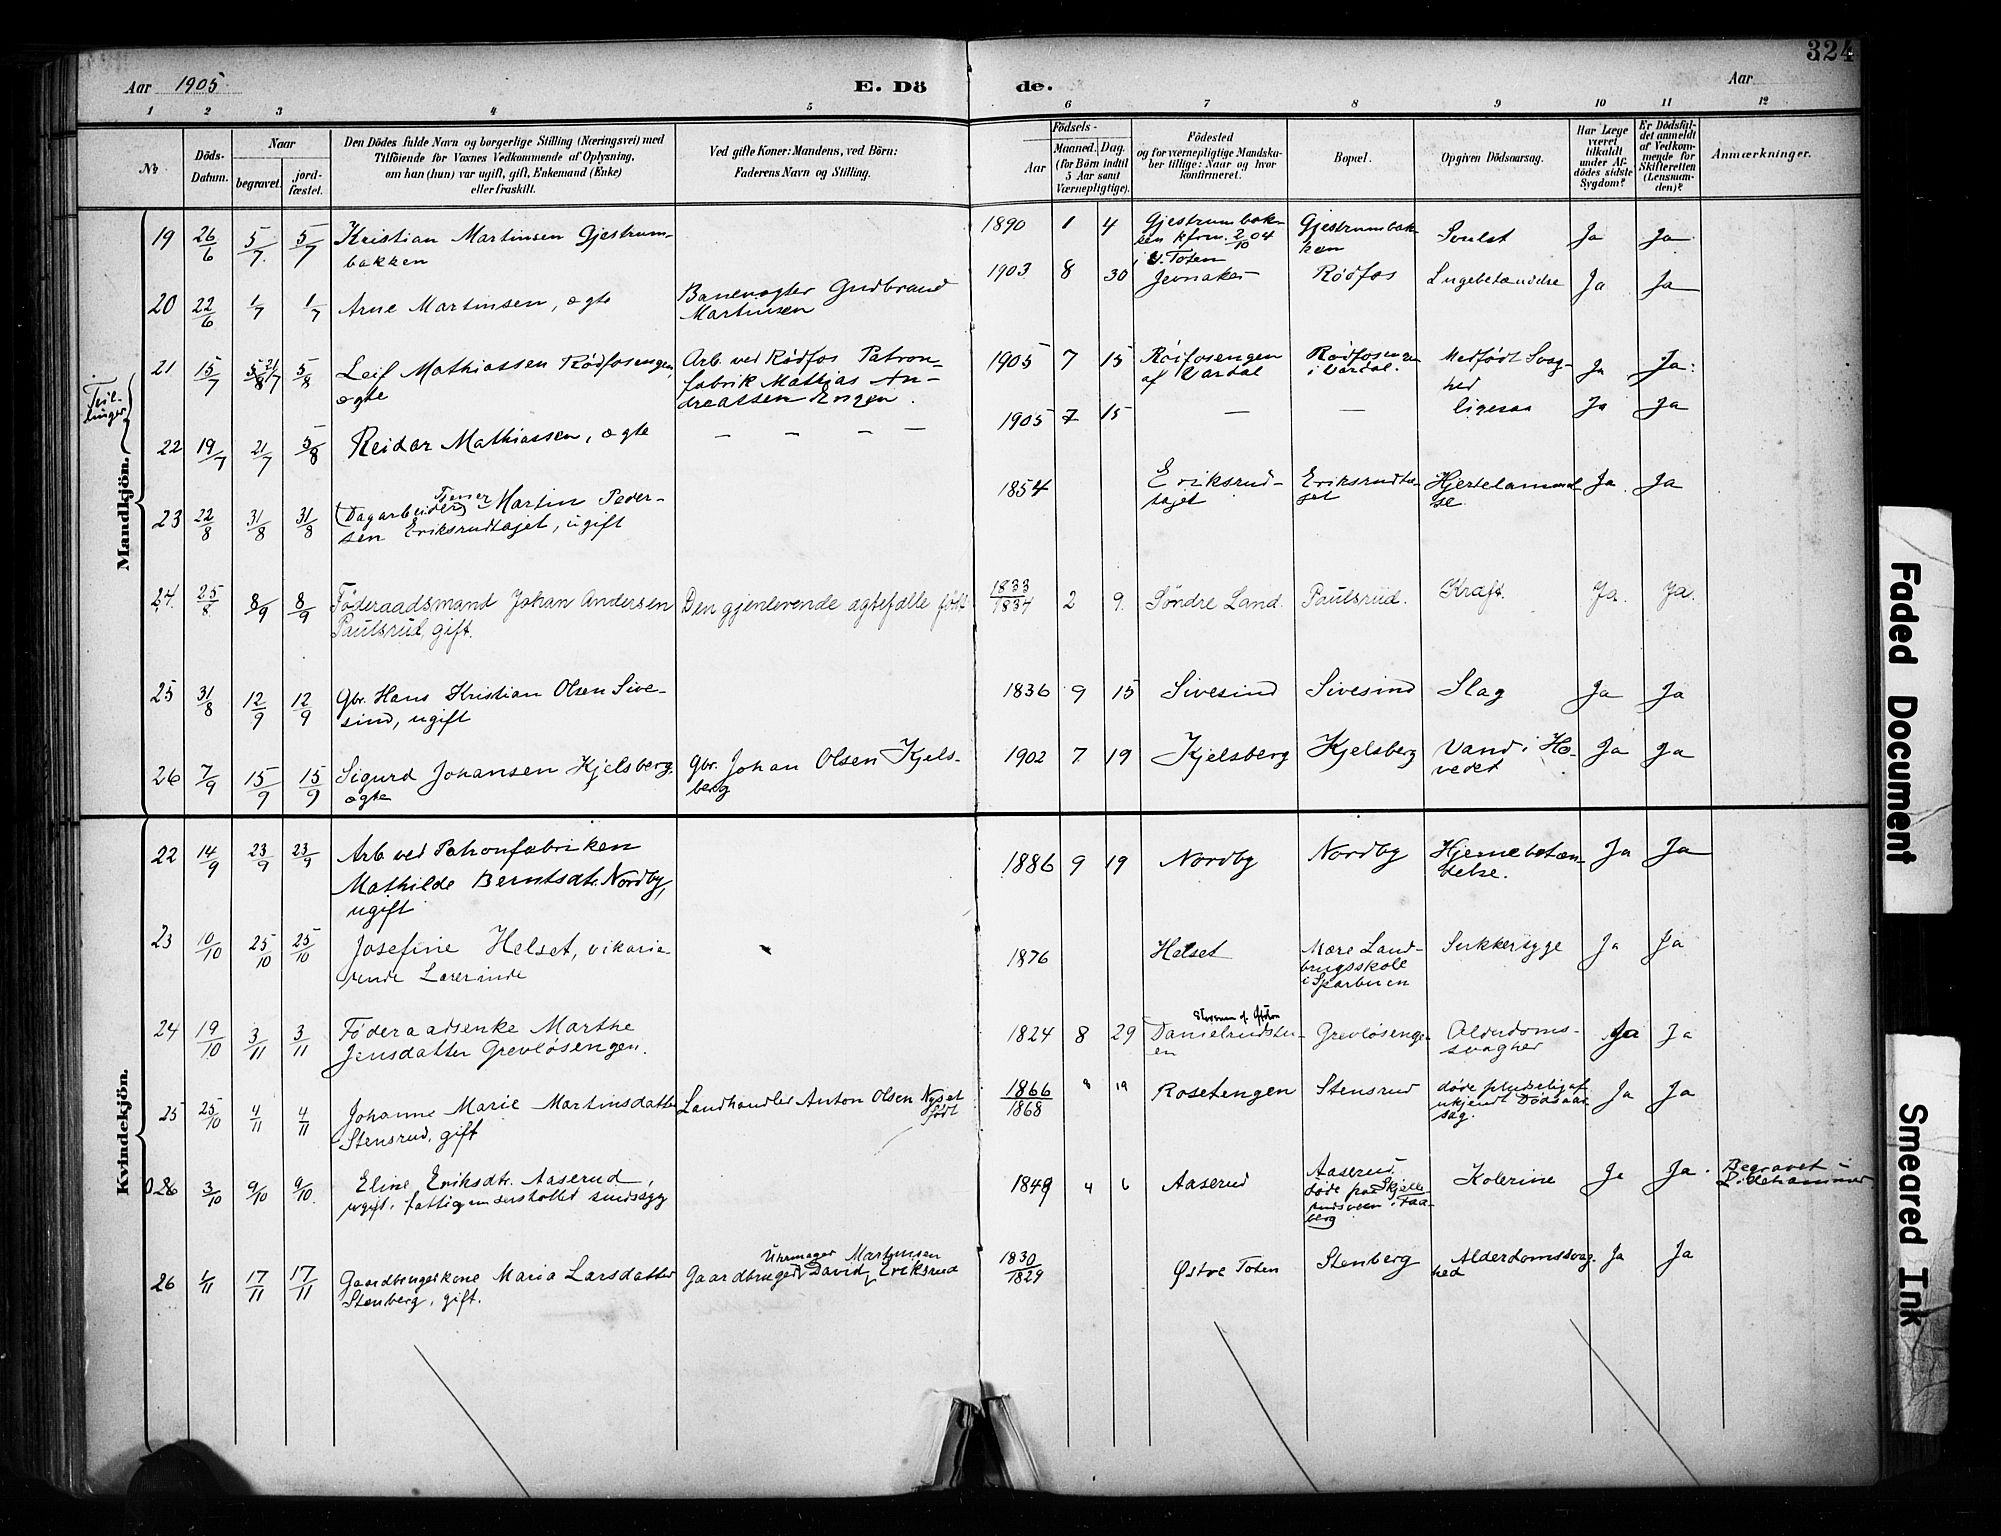 324
Aar 1905.
E. Dö
de.
Aar
1 2 3 4 5 6 7 8 9 10 11 12
No
Döds-
Datum.
Naar
begravet.
jord-
fæstet.
Den Dödes fulde Navn og borgerlige Stilling (Næringsvei) med
Tilföiende for Voxnes Vedkommende af Oplysning,
om han (hun) var ugift, gift, Enkemand (Enke)
eller fraskilt.
Ved gifte Koner: Mandens, ved Börn:
Faderens Navn og Stilling.
Födsels-
Aar
Maaned. Dag.
(for Börn indtil
5 Aar samt
Værnepligtige).
Födested
og for værnepligtige Mandska-
ber tillige: Naar og hvor
konfirmeret.
Bopæl.
Opgiven Dödsaarsag.
Har Læge
været
tilkaldt
under Af-
dödes sidste
Sygdom?
Er Dödsfal-
det anmeldt
af Vedkom-
mende for
Skifteretten
(Lensman-
den)?
Anmærkninger.
Mandkjön.
19 26/6 5/7 5/7 Kristian Martinsen Gjestrum-
bakken
1890 1 4 Gjestrumbak-
ken kfrm. 2/10 04
i V. Toten
Gjestrumbak-
ken
Svulst Ja Ja
20 22/6 1/7 1/7 Arne Martinsen, ægte
Banevogter Gudbrand
Martinsen
1903 8 30 Jevnaker Rødfos Lugebetændelse Ja Ja
Tvil-
linger
21 15/7 21/7 5/8 Leif Mathiassen Rødfosengen,
ægte
Arb. ved Rødfos Patron-
fabrik Mathias An-
dreassen Engen.
1905 7 15 Røifosengen
af Vardal
Rødfosengen
i Vardal.
Medfødt Svag-
hed
Ja Ja.
22 19/7 21/7 5/8 Reidar Mathiassen, ægte
— — — —
1905 7 15 — — ligesaa Ja Ja
23 22/8 31/8 31/8 (Dagarbeider) Tjener Martin Peder-
sen Eriksrudtajet, ugift
1854 Eriksrud-
tajet
Eriksrudta-
jet
Hjertelammel-
se.
Ja. Ja
24. 25/8 8/9 8/9 Føderaadsmand Johan Andersen
Paulsrud, gift.
Den gjenlevende ægtefælle født
1833/1834 2 9. Søndre Land. Paulsrud. Kræft. Ja. Ja.
25 31/8 12/9 12/9 Gbr. Hans Kristian Olsen Sive-
sind, ugift
1836 9 15 Sivesind Sivesind Slag Ja Ja
26 7/9 15/9 15/9 Sigurd Johansen Kjelsberg,
ægte
Gbr. Johan Olsen Kjels-
berg
1902 7 19 Kjelsberg Kjelsberg Vand i Ho-
vedet
Ja Ja
Kvindekjön.
22 14/9 23/9 23/9 Arb. ved Patronfabriken
Mathilde Berntsdtr. Nordby,
ugift
1886 9 19 Nordby Nordby Hjernebetæn-
delse.
Ja Ja
23 10/10 25/10 25/10 Josefine Helset, vikarie-
rende Lærerinde
1876 Helset Mære Land-
brugsskole
i Sparbuen
Sukkersyge Ja Ja
24 19/10 3/11 3/11 Føderaadsenke Marthe
Jensdatter Grevløsengen.
1824 8 29 Danielrudstu-
en
Grevløsengen Alderdoms-
svaghed
Ja Ja
25 25/10 4/11 4/11 Johanne Marie Martinsdatter
Stensrud, gift
Landhandler Anton Olsen Nyset
født
1866/1868 9 19 Rosetengen Stensrud døde pludselig af
ukjendt Dødsaar-
sag.
Ja Ja
26 3/10 9/10 9/10. Eline Eriksdtr. Aaserud,
ugift, fattigunderstøttet sindssyg
1849 4 6 Aaserud Aaserud
døde paa Skjelle-
rudsveen i Faa-
berg
Kolerine Ja Ja. Begravet i
Lillehammer
26 1/11 17/11 17/11 Gaardbrugerkone Maria Larsdatter
Stenberg, gift.
Uhrmager Martinsen
Gaardbruger David Eriksrud
1830/1829 Østre Toten Stenberg Alderdomssvag-
hed
Ja Ja
Faded Document
Smeared Ink